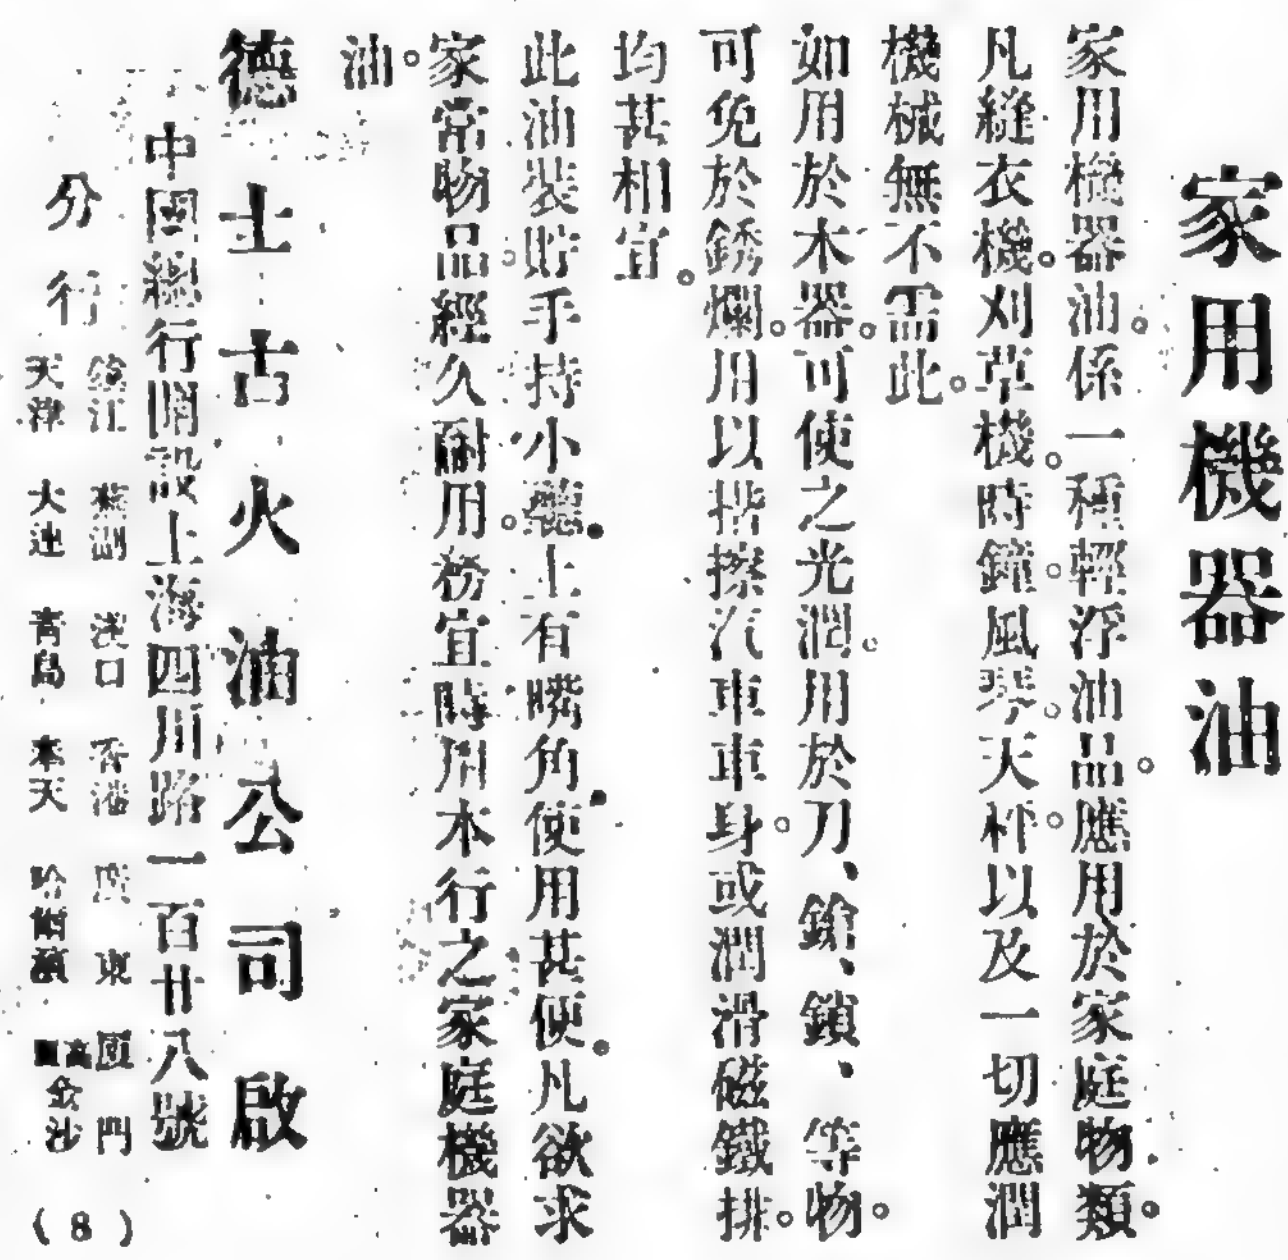 家用機器油
家用機器油。係一種輕浮油品。應用於家庭物類。
凡縫衣機。刈草機。時鐘。風琴。天秤。以及一切應潤
機械無不需此。
如用於木器。可使之光潤。用於刀、鎗、鎖、等物。
可免於銹爛。用以揩擦汽車車身。或潤滑磁鐵排。
均甚相宜。
此油裝貯手持小聽。上有嘴角。使用甚便。凡欲求
家常物品。經久耐用。務宜時用本行之家庭機器
油。
德士古火油公司啟
中國總行開設上海四川路一百廿八號
分行
鎮江 蕪湖 漢口 香港 廣東 廈門
天津 大連 青島 奉天 哈爾濱 長沙
(8)